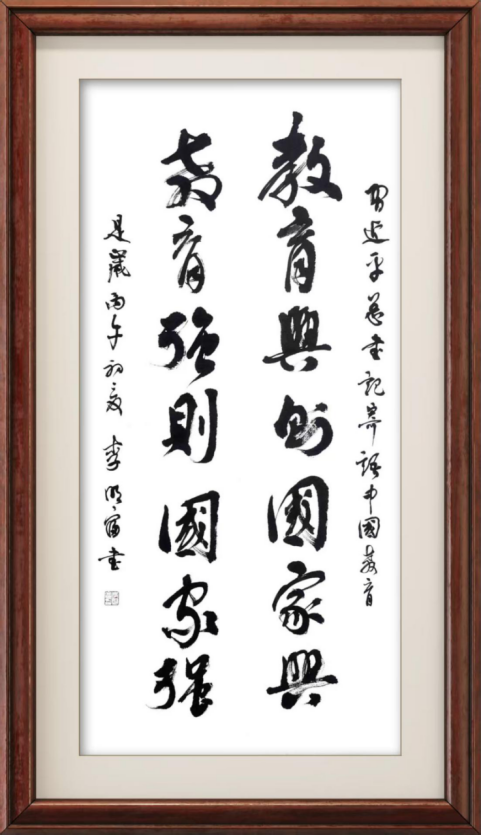 習近平總書記寄語中國教育
教育興則國家興
教育強則國家強
是歲丙午初夏 李明富書